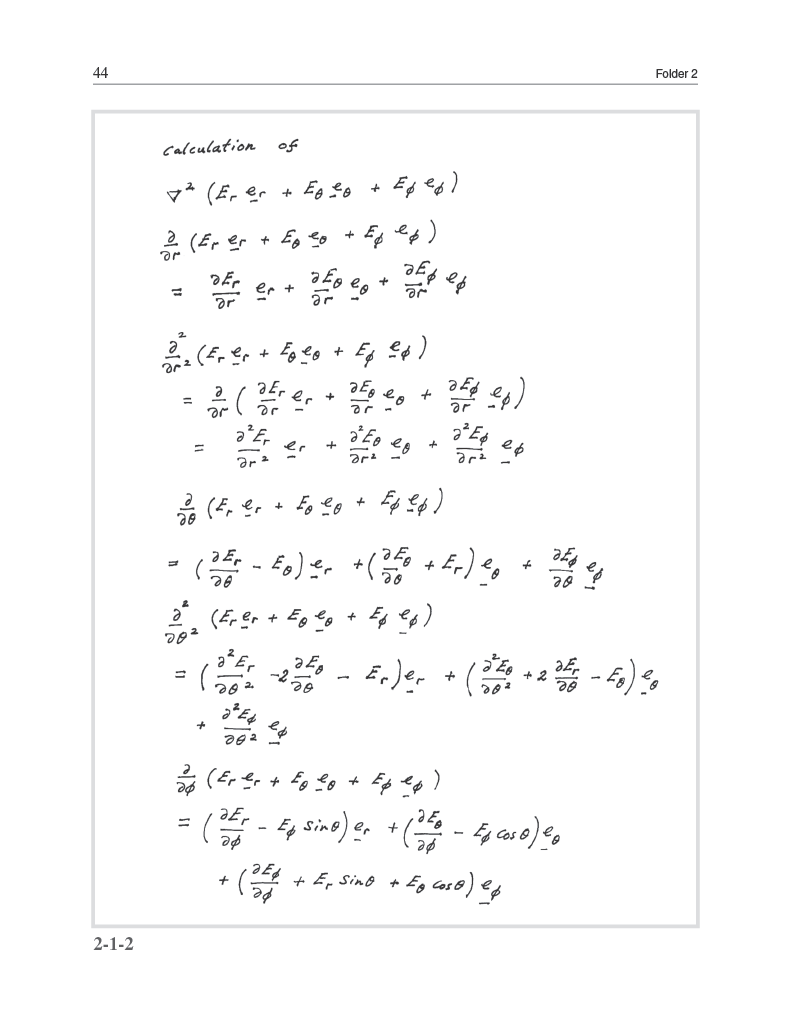 44 Folder 2
Calculation of
∇² (E_r e̲_r + E_θ e̲_θ + E_ϕ e̲_ϕ)
∂/∂r (E_r e̲_r + E_θ e̲_θ + E_ϕ e̲_ϕ)
= ∂E_r/∂r e̲_r + ∂E_θ/∂r e̲_θ + ∂E_ϕ/∂r e_ϕ
∂²/∂r² (E_r e̲_r + E_θ e̲_θ + E_ϕ e̲_ϕ)
= ∂/∂r ( ∂E_r/∂r e̲_r + ∂E_θ/∂r e̲_θ + ∂E_ϕ/∂r e̲_ϕ)
= ∂²E_r/∂r² e̲_r + ∂²E_θ/∂r² e̲_θ + ∂²E_ϕ/∂r² e̲_ϕ
∂/∂θ (E_r e̲_r + E_θ e̲_θ + E_ϕ e̲_ϕ)
= (∂E_r/∂θ - E_θ) e̲_r + (∂E_θ/∂θ + E_r) e̲_θ + ∂E_ϕ/∂θ e̲_ϕ
∂²/∂θ² (E_r e̲_r + E_θ e̲_θ + E_ϕ e̲_ϕ)
= (∂²E_r/∂θ² -2 ∂E_θ/∂θ - E_r) e̲_r + (∂²E_θ/∂θ² + 2 ∂E_r/∂θ - E_θ) e̲_θ
+ ∂²E_ϕ/∂θ² e̲_ϕ
∂/∂ϕ (E_r e̲_r + E_θ e̲_θ + E_ϕ e̲_ϕ)
= (∂E_r/∂ϕ - E_ϕ sinθ) e̲_r + (∂E_θ/∂ϕ - E_ϕ cosθ) e̲_θ
+ (∂E_ϕ/∂ϕ + E_r sinθ + E_θ cosθ) e̲_ϕ
2-1-2